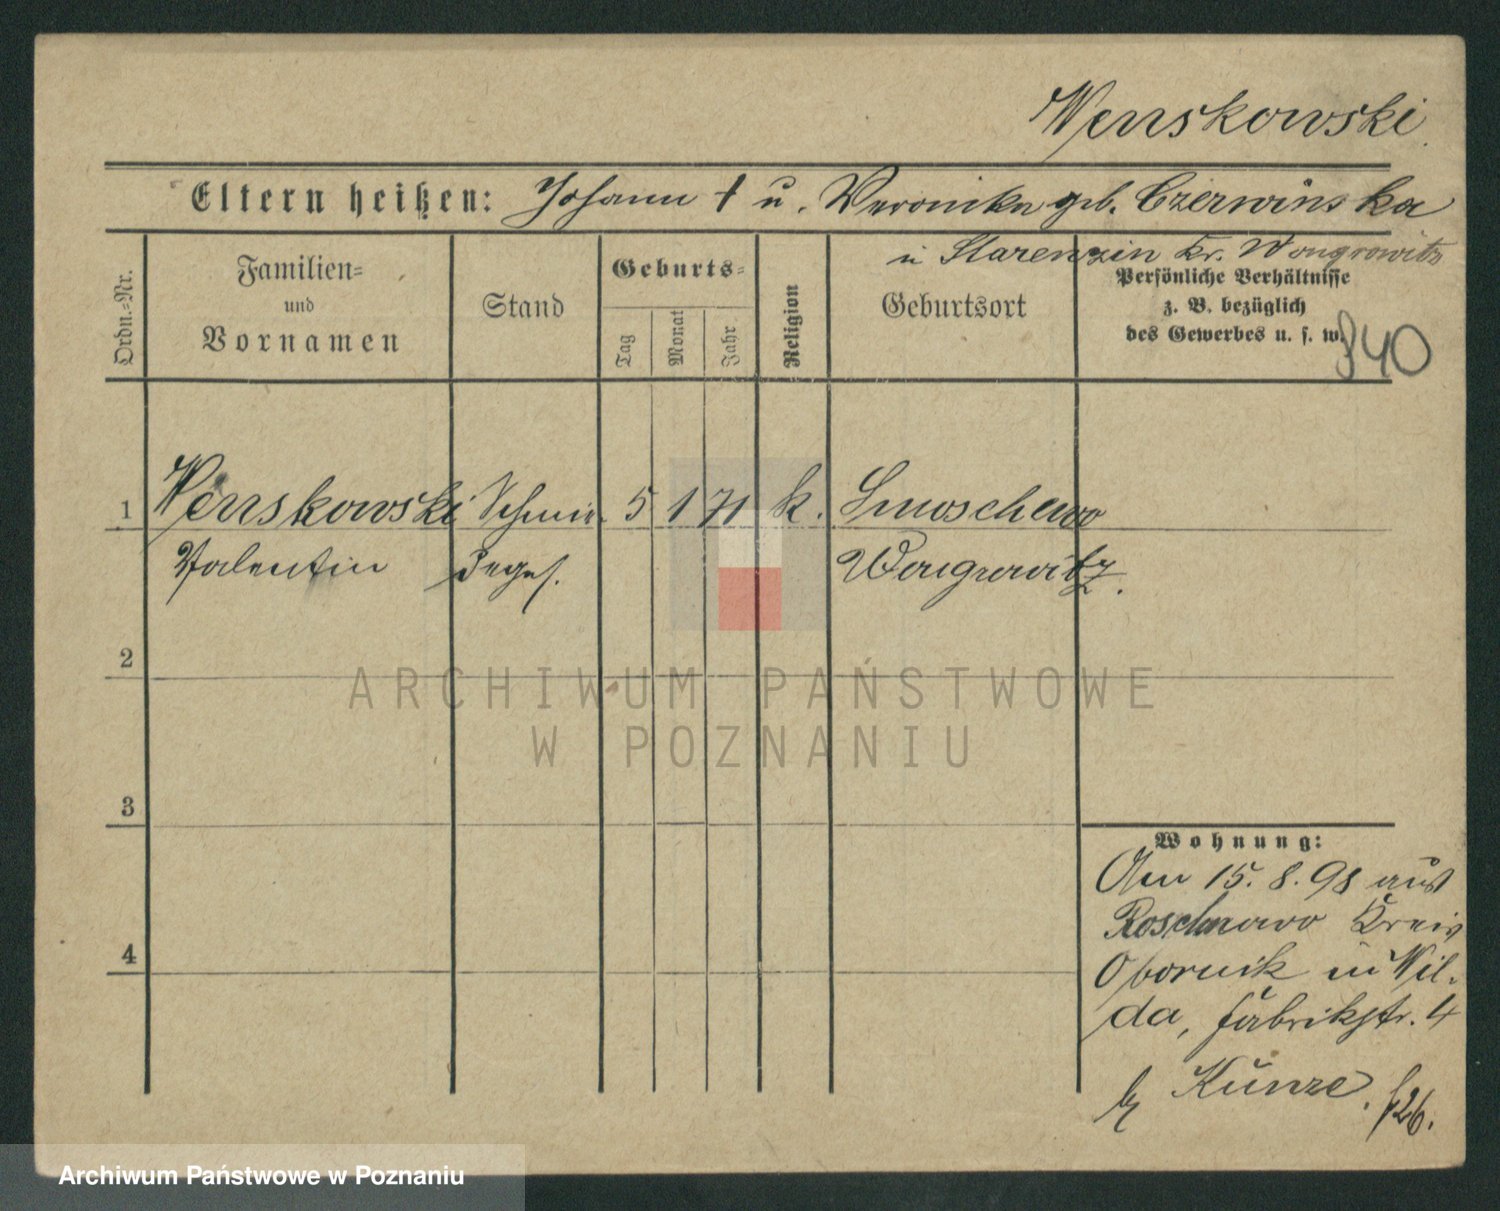 Wenskowski
Eltern heißen: Johann † u. Veronika geb. Czerwinska
in Starenzin Kr. Wongrowitz
Ordn.-Nr.
Familien=
und
Vornamen
Stand
Geburts=
Tag
Monat
Jahr
Religion
Geburtsort
Persönliche Verhältnisse
z. B. bezüglich
des Gewerbes u. s. w.
840
1 Wenskowski Schmie- 5 1 71 k. Smoschewo
Valentin deges. Wongrowitz.
2
3
4
Wohnung:
Am 15.8.98 aus
Roschnowo Kreis
Obornik in Wil-
da, Fabrikstr. 4
b/ Kunze. 126.
ARCHIWUM PAŃSTWOWE
W POZNANIU
Archiwum Państwowe w Poznaniu